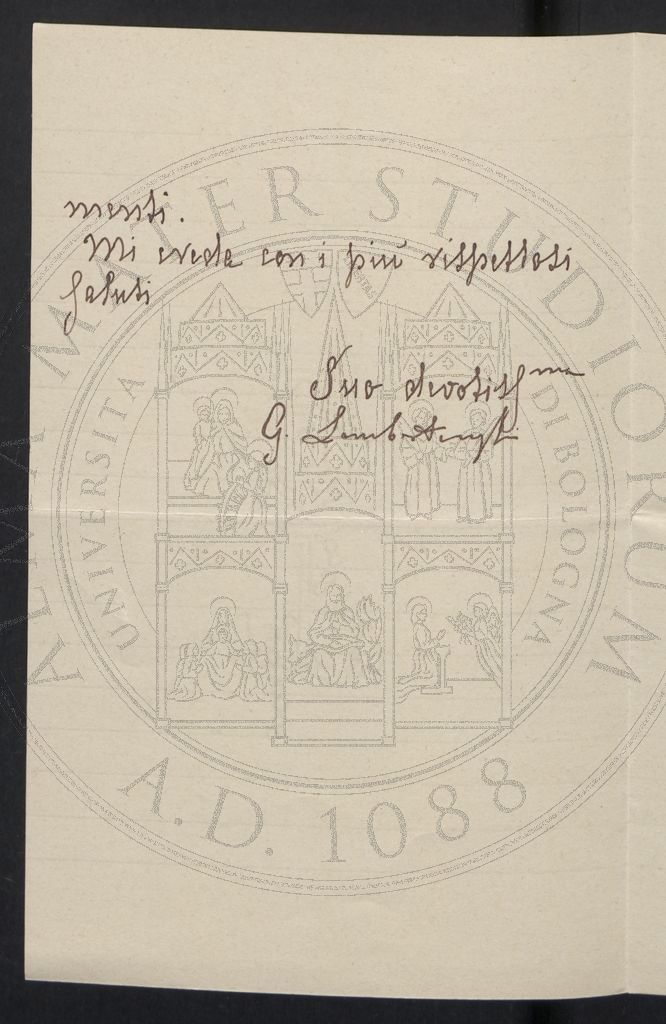 menti.
Mi creda con i più rispettosi
saluti
Suo devotiss.mo
G.
ALMA MATER STUDIORUM
UNIVERSITA DI BOLOGNA
A.D. 1088